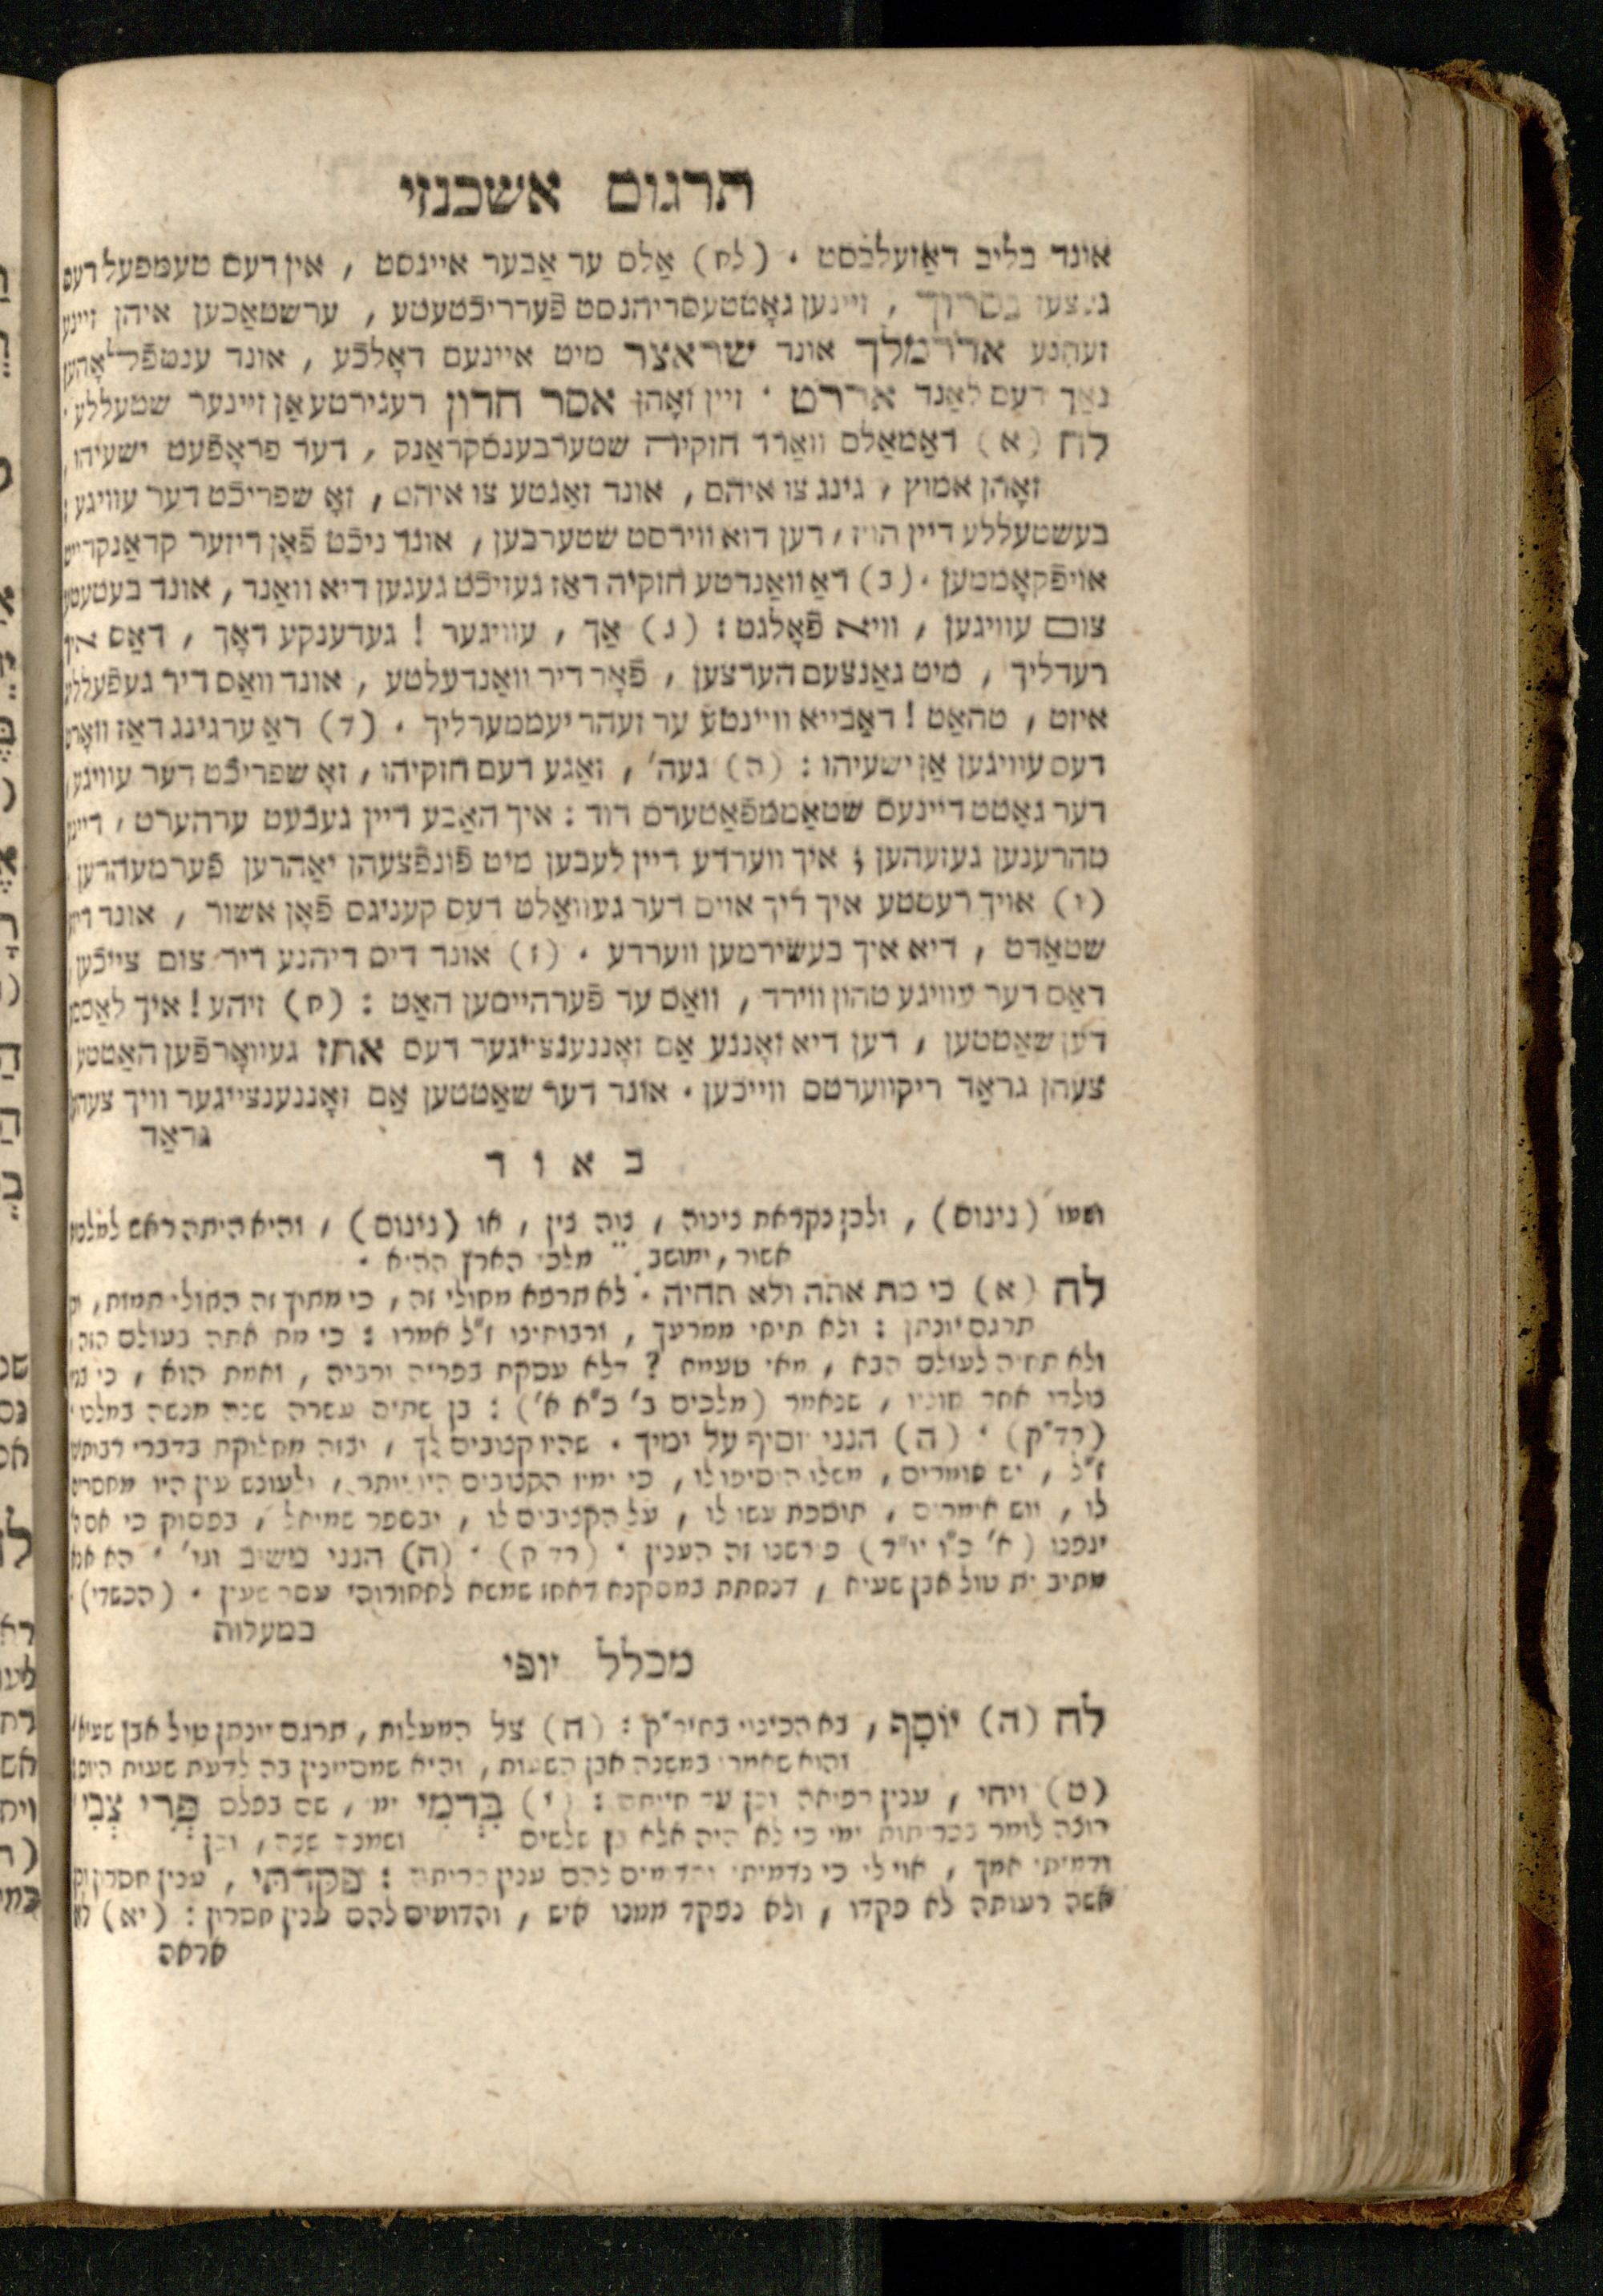 תרגום אשכנזי
אונד בליב דאַזעלבסט . (לח) אַלס ער אַבער איינסט , אין דעם טעמפעל דעס
געצען נסרוך , זיינען גאָטטעסדיהנסט פֿערריכֿטעטע , ערשטאַכען איהן זיינע
זעהנע אדרמלך אונד שראצר מיט איינעם דאָלכֿע , אונד ענטפֿלאָהען
נאַך דעם לאַנד אררט . זיין זאָהן אסר חדון רעגירטע אַן זיינער שטעללע .
לח (א) דאַמאַלס וואַרד חזקיה שטערבענסקראַנק , דער פראָפֿעט ישעיהו ,
זאָהן אמוץ , גינג צו איהם , אונד זאַגטע צו איהם , זאָ שפריכֿט דער עוויגע :
בעשטעללע דיין הויז , דען דוא ווירסט שטערבען , אונד ניכֿט פֿאָן דיזער קראַנקהייט
אויפֿקאָממען . (ב) דאַ וואַנדטע חזקיה דאַז געזיכֿט געגען דיא וואַנד , אונד בעטעטע
צום עוויגען , וויא פֿאָלגט : (ג) אַך , עוויגער ! געדענקע דאָך , דאַס איך
רעדליך , מיט גאַנצעם הערצען , פֿאָר דיר וואַנדעלטע , אונד וואַס דיר געפֿעללע
איזט , טהאַט ! דאַבייא וויינטע ער זעהר יעממערליך . (ד) דאַ ערגינג דאַז וואָרט
דעס עוויגען אַן ישעיהו : (ה) געה' , זאַגע דעם חזקיהו , זאָ שפריכֿט דער עוויגע ,
דער גאָטט דיינעס שטאַממפֿאַטערס דוד : איך האַבע דיין געבעט ערהערט , דיינע
טהרענען געזעהען ; איך ווערדע דיין לעבען מיט פֿונפֿצעהן יאַהרען פֿערמעהרען .
(ו) אויך רעטטע איך דיך אויס דער געוואַלט דעס קעניגס פֿאָן אשור , אונד דיא
שטאַדט , דיא איך בעשירמען ווערדע . (ז) אונד דיס דיהנע דיר צום צייכֿען ,
דאַס דער עוויגע טהון ווירד , וואַס ער פֿערהייסען האַט : (ח) זיהע ! איך לאַסס
דען שאַטטען , דען דיא זאָננע אַם זאָננענצייגער דעס אחז געוואָרפֿען האַטטע ,
צעהן גראַד ריקווערטס ווייכען . אונד דער שאַטטען אַם זאָננענצייגער וויך צעהן
גראַד
באור
ושמו (נינוס) , ולכן נקראת נינוה , נוה נין , או (נינוס) , והיא היתה ראש למלכות
אשור , ומושב מלכי הארץ ההיא .
לח (א) כי מת אתה ולא תחיה . לא תרפא מחולי זה , כי מתוך זה החולי תמות , וכן
תרגם יונתן : ולא תיחי ממרעך , ורבותינו ז"ל אמרו : כי מת אתה בעולם הזה ,
ולא תחיה לעולם הבא , מאי טעמא ? דלא עסקת בפריה ורביה , ואמת הוא , כי
נולדי אחר חוליו , שנאמר (מלכים ב' כ"א א') : בן שתים עשרה שנה מנשה במלכו
(רד"ק) . (ה) הנני יוסיף על ימיך . שהיו קצובים לך , ובזה מחלוקת בדברי רבותינו
ז"ל , יש אומרים , משלו הוסיפו לו , כי ימיו הקצובים היו יותר , ולעונש עין היו מחסרים
לו , ויש אומרים , תוספת עשו לו , על הקצובים לו , ובספר שמואל , בפסוק כי אם ה'
יגפנו (א' כ"ו יו"ד) פירשנו זה הענין . (רד"ק) . (ח) הנני משיב וגו' . הא אנא
מתיב ית טול אבן שעיא , דנחתת במסקנא דאחז שמשא לאחורוהי עסר שעין . (הכשדי) .
במעלות
מכלל יופי
לח (ה) יוֹסִף , בא הכינוי בחיר"ק : (ח) צל המעלות , תרגם יונתן טול אבן שעיא ,
והוא שאמרו במשנה אבן השעות , והיא שמסיימין בה לדעת שעות היום
(ט) ויחי , ענין רפואה וכן עד חיותם : (י) בִּדְמִי ימי , שם בפלס פְּרִי צְבִי
רוצה לומר בכריתות ימי כי לא היה אלא בן שלשים ושמנה שנה , וכן
ודמיתי אמך , אוי לי כי נדמיתי והדומים להם ענין כריתה : פקדתי , ענין חסרון וכן
אשה רעותה לא פקדו , ולא נפקד ממנו איש , והדומים להם ענין חסרון : (יא) לא
אראה